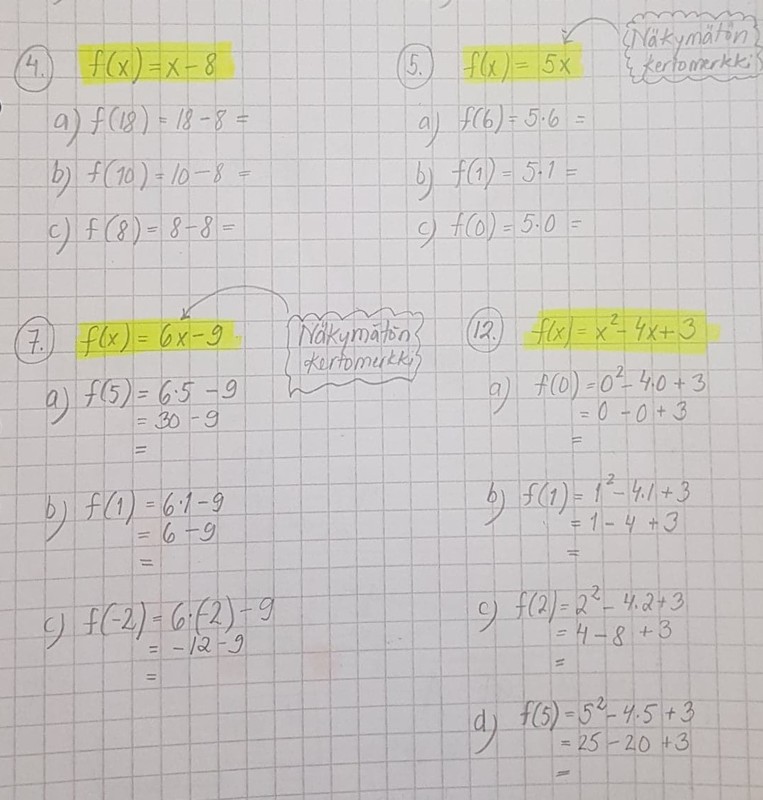 4. f(x) = x - 8
a) f(18) = 18 - 8 =
b) f(10) = 10 - 8 =
c) f(8) = 8 - 8 =
5. f(x) = 5x
Näkymätön
kertomerkki
a) f(6) = 5·6 =
b) f(1) = 5·1 =
c) f(0) = 5·0 =
7. f(x) = 6x - 9
Näkymätön
kertomerkki
a) f(5) = 6·5 - 9
= 30 - 9
=
b) f(1) = 6·1 - 9
= 6 - 9
=
c) f(-2) = 6·(-2) - 9
= -12 - 9
=
12. f(x) = x² - 4x + 3
a) f(0) = 0² - 4·0 + 3
= 0 - 0 + 3
=
b) f(1) = 1² - 4·1 + 3
= 1 - 4 + 3
=
c) f(2) = 2² - 4·2 + 3
= 4 - 8 + 3
=
d) f(5) = 5² - 4·5 + 3
= 25 - 20 + 3
=